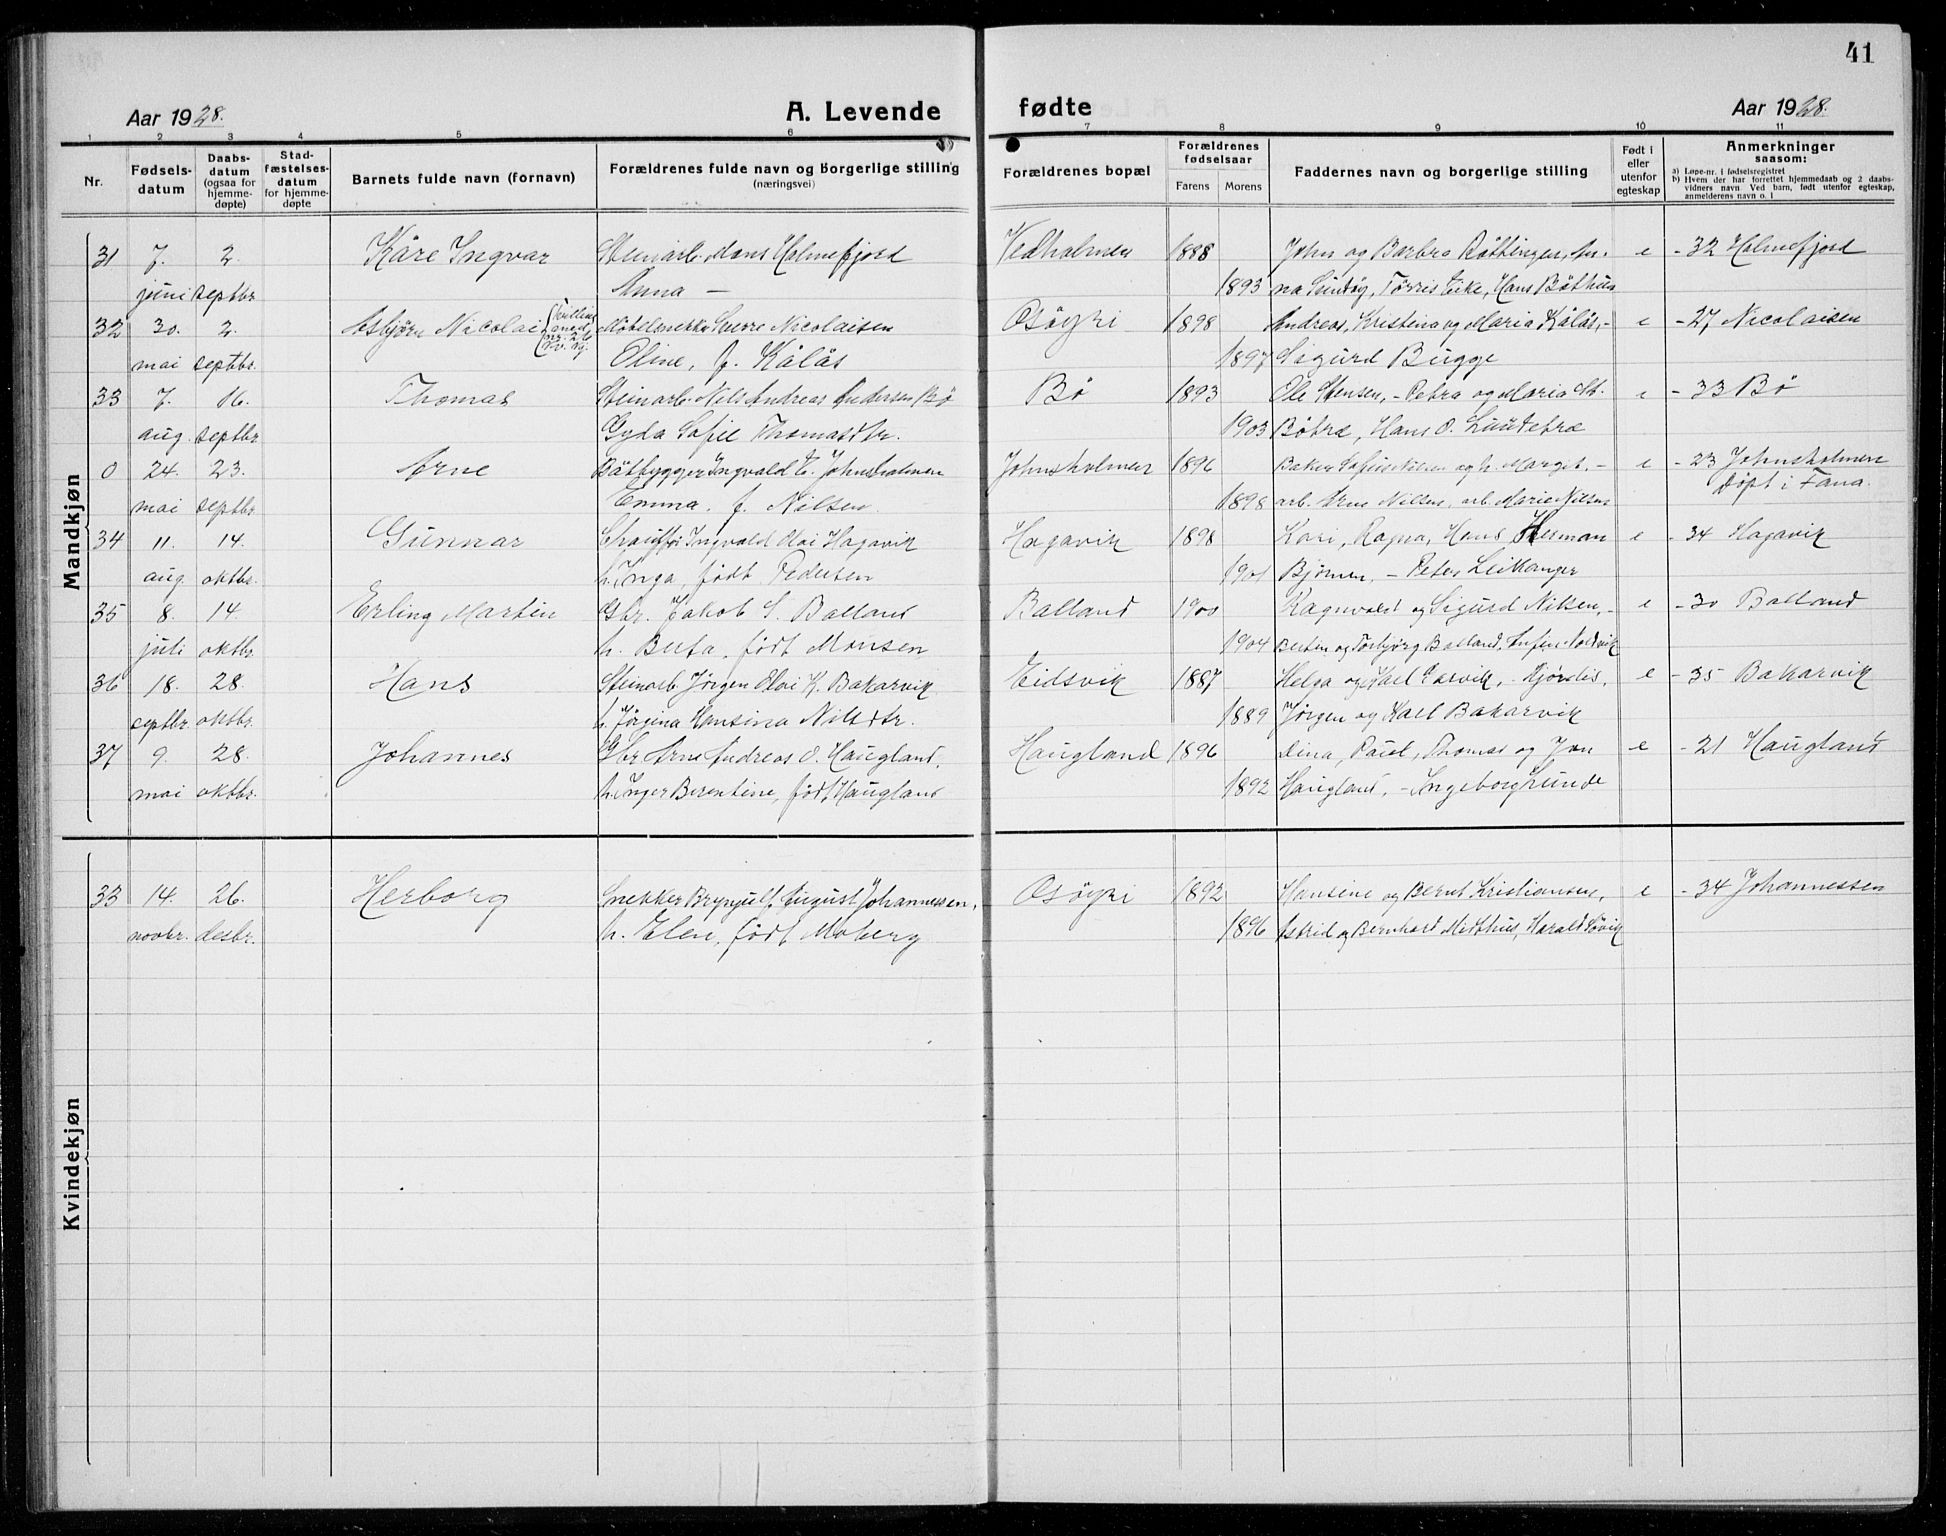 41
Aar 1928. A. Levende fødte Aar 1928.
1 2 3 4 5 6 7 8 9 10 11
Nr.
Fødselsdatum
Daabsdatum (ogsaa for hjemmedøpte)
Stadfæstelsesdatum for hjemmedøpte
Barnets fulde navn (fornavn)
Forældrenes fulde navn og borgerlige stilling (næringsvei)
Forældrenes bopæl
Forældrenes fødselsaar
Farens Morens
Faddernes navn og borgerlige stilling
Født i eller utenfor egteskap
Anmerkninger saasom:
a) Løpe-nr. i fødselsregistret
b) Hvem der har forrettet hjemmedaab og 2 daabsvidners navn. Ved barn, født utenfor egteskap, anmelderens navn o. l
Mandkjøn
31 7. 2. Kåre Ingvar Steinarb. Mons Holmefjord Vedholmen 1888 John og Barbra Røttingen, An- e - 32 Holmefjord
juni septbr Anna — 1893 na Sundøy, Tørris Eike, Hans Bøthun
32 30. 2. Asbjørn Nicolai Møbelsnekker Sverre Nicolaisen Osøyri 1898 Andreas, Kristina og Maria Kålås, - e - 27 Nicolaisen
mai septbr. Oline, f. Kålås 1897 Sigurd Bugge
33 7. 16. Thomas Steinarb. Nils Andreas Andersen Bø Bø 1893 Ole Stensen, - Petra og Maria e - 33 Bø
aug. septbr. Gyda Sofie Thomasdtr. 1903 Hans O.
0 24. 23. Arne Båtbygger Ingvald E. Johnsholmen Johnsholmen 1896 Baker Nilsen og h. Margit, - e - 23 Johnsholmen
mai septbr Emma, f. Nilsen 1898 arb. Arne Nilsen, arb. Marie Nilsen døpt i Fana.
34 11. 14. Gunnar Chauffør Ingvald Olai Hagavik Hagavik 1898 Kari, Ragna, Hans Herman e - 34 Hagavik
aug. oktbr. h. Inga, født Pedersen 1901 Bjørnen, - Peter Leikanger
35 8. 14. Erling Martin Gbr. Jakob S. Balland Balland 1900 Ragnvald og Sigurd Nilsen, - e - 30 Balland
juli oktbr. h. Berta, født Monsen 1904 Torbjørg Balland,
36 18. 28. Hans Steinarb Jørgen Olai K. Bakarvik Eidsvik 1887 Helga og e - 35 Bakarvik
septbr. oktbr. h. Jørgina Hansina Nilsdtr. 1889 Jørgen og Karl Bakarvik
37 9. 28. Johannes Gbr Arne Andreas O. Haugland, Haugland 1896 Dina, Paul, Thomas og Jon e - 21 Haugland
mai oktbr. h. Inger Berentine, født Haugland 1892 Haugland, - Ingeborg Lunde
Kvindekjøn
33 14. 26. Herborg Snekker Brynjulf August Johannessen, Osøyri 1892 Hansine og Bernt Kristiansen, e - 34 Johannessen
novbr. desbr. h. Elen, født Moberg 1896 Astrid og Bernhard Midthus, Harald Søvik